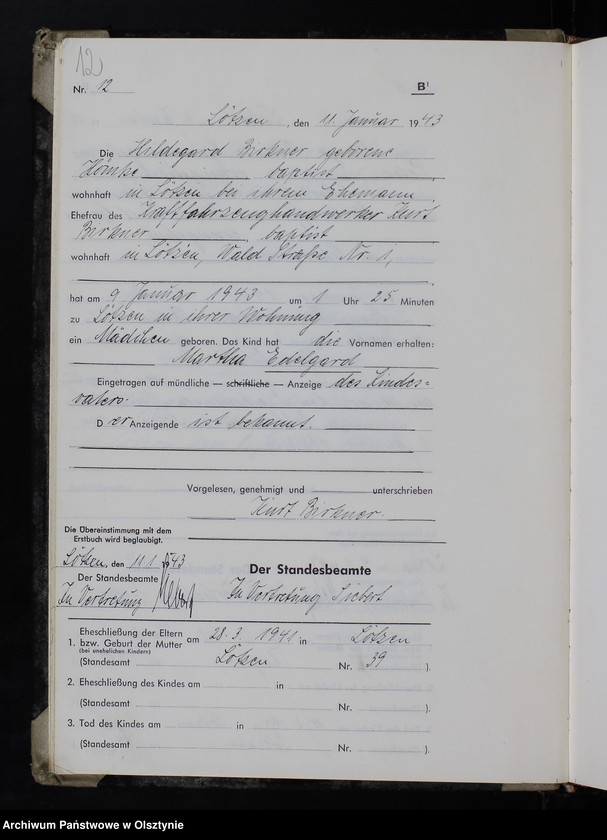 12
Nr. 12 B¹
Lötzen, den 11 Januar 1943
Die Hildegard Birkner geborene
baptist
wohnhaft in Lötzen bei ihrem Ehemann,
Ehefrau des Kraftfahrzeughandwerker Kurt
Birkner baptist
wohnhaft in Lötzen, Wald Straße Nr. 1,
hat am 9 Januar 1943 um 1 Uhr 25 Minuten
zu Lötzen in ihrer Wohnung
ein Mädchen geboren. Das Kind hat die Vornamen erhalten:
Martha Edelgard
Eingetragen auf mündliche — schriftliche — Anzeige des Kindes=
vaters.
Der Anzeigende ist bekannt.
Vorgelesen, genehmigt und unterschrieben
Kurt Birkner.
Die Übereinstimmung mit dem
Erstbuch wird beglaubigt.
Lötzen, den 11.1.1943
Der Standesbeamte
Der Standesbeamte
In Vertretung
In Vertretung Siebert
Eheschließung der Eltern
1. bzw. Geburt der Mutter am 28.3.1941 in Lötzen
(bei unehelichen Kindern)
(Standesamt Lötzen Nr. 39 ).
2. Eheschließung des Kindes am in
(Standesamt Nr. ).
3. Tod des Kindes am in
(Standesamt Nr. ).
Archiwum Państwowe w Olsztynie